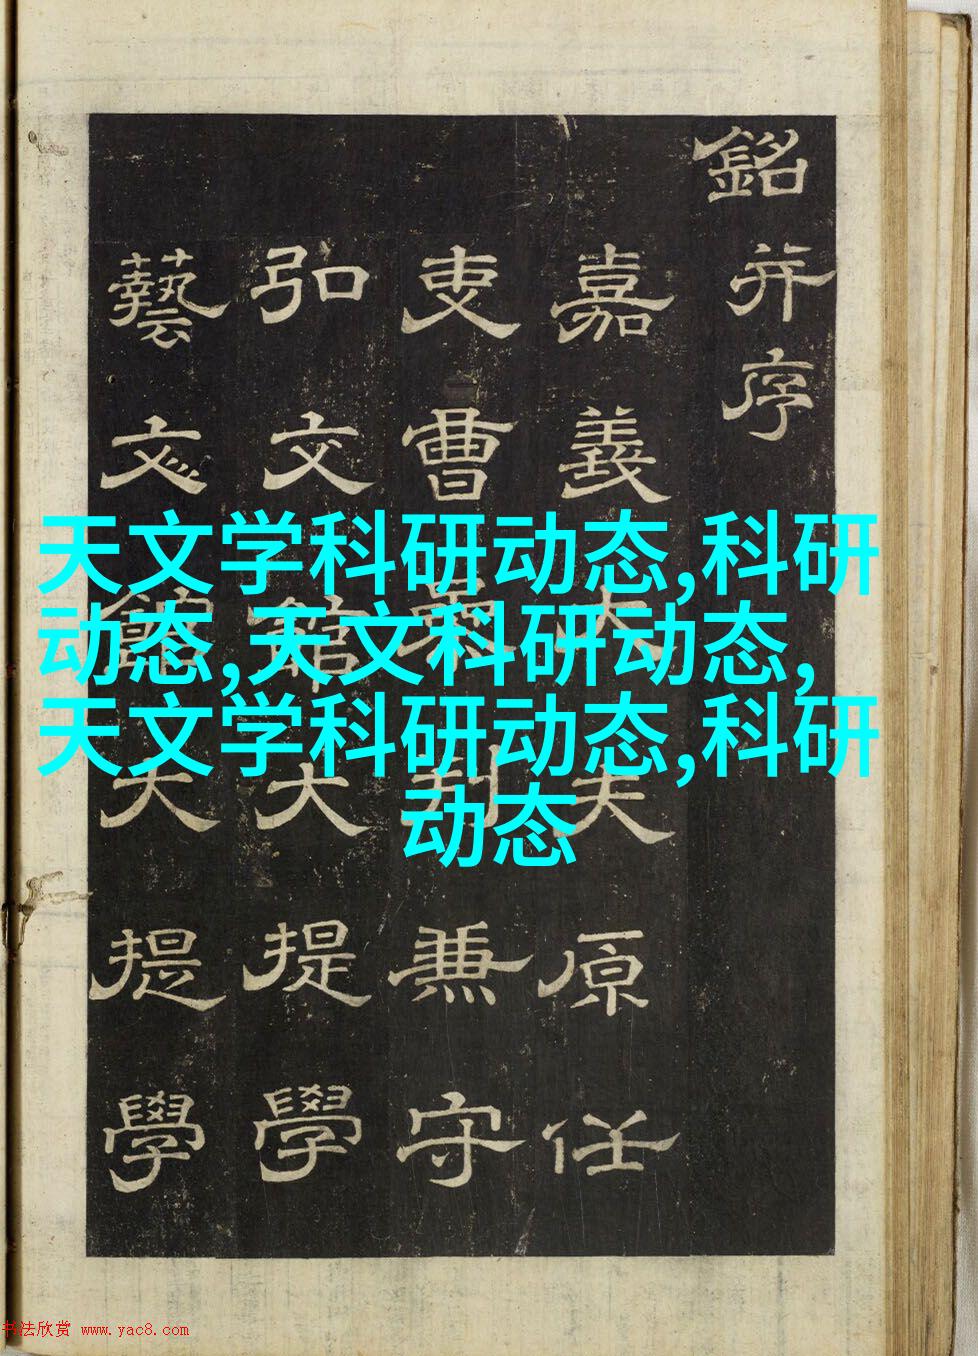 銘并序
嘉義大夫原任
吏曹參判兼守
弘文館大提學
藝文館大提學
天文学科研动态,科研
动态,天文科研动态,
天文学科研动态,科研
动态
书法欣赏 www.yac8.com